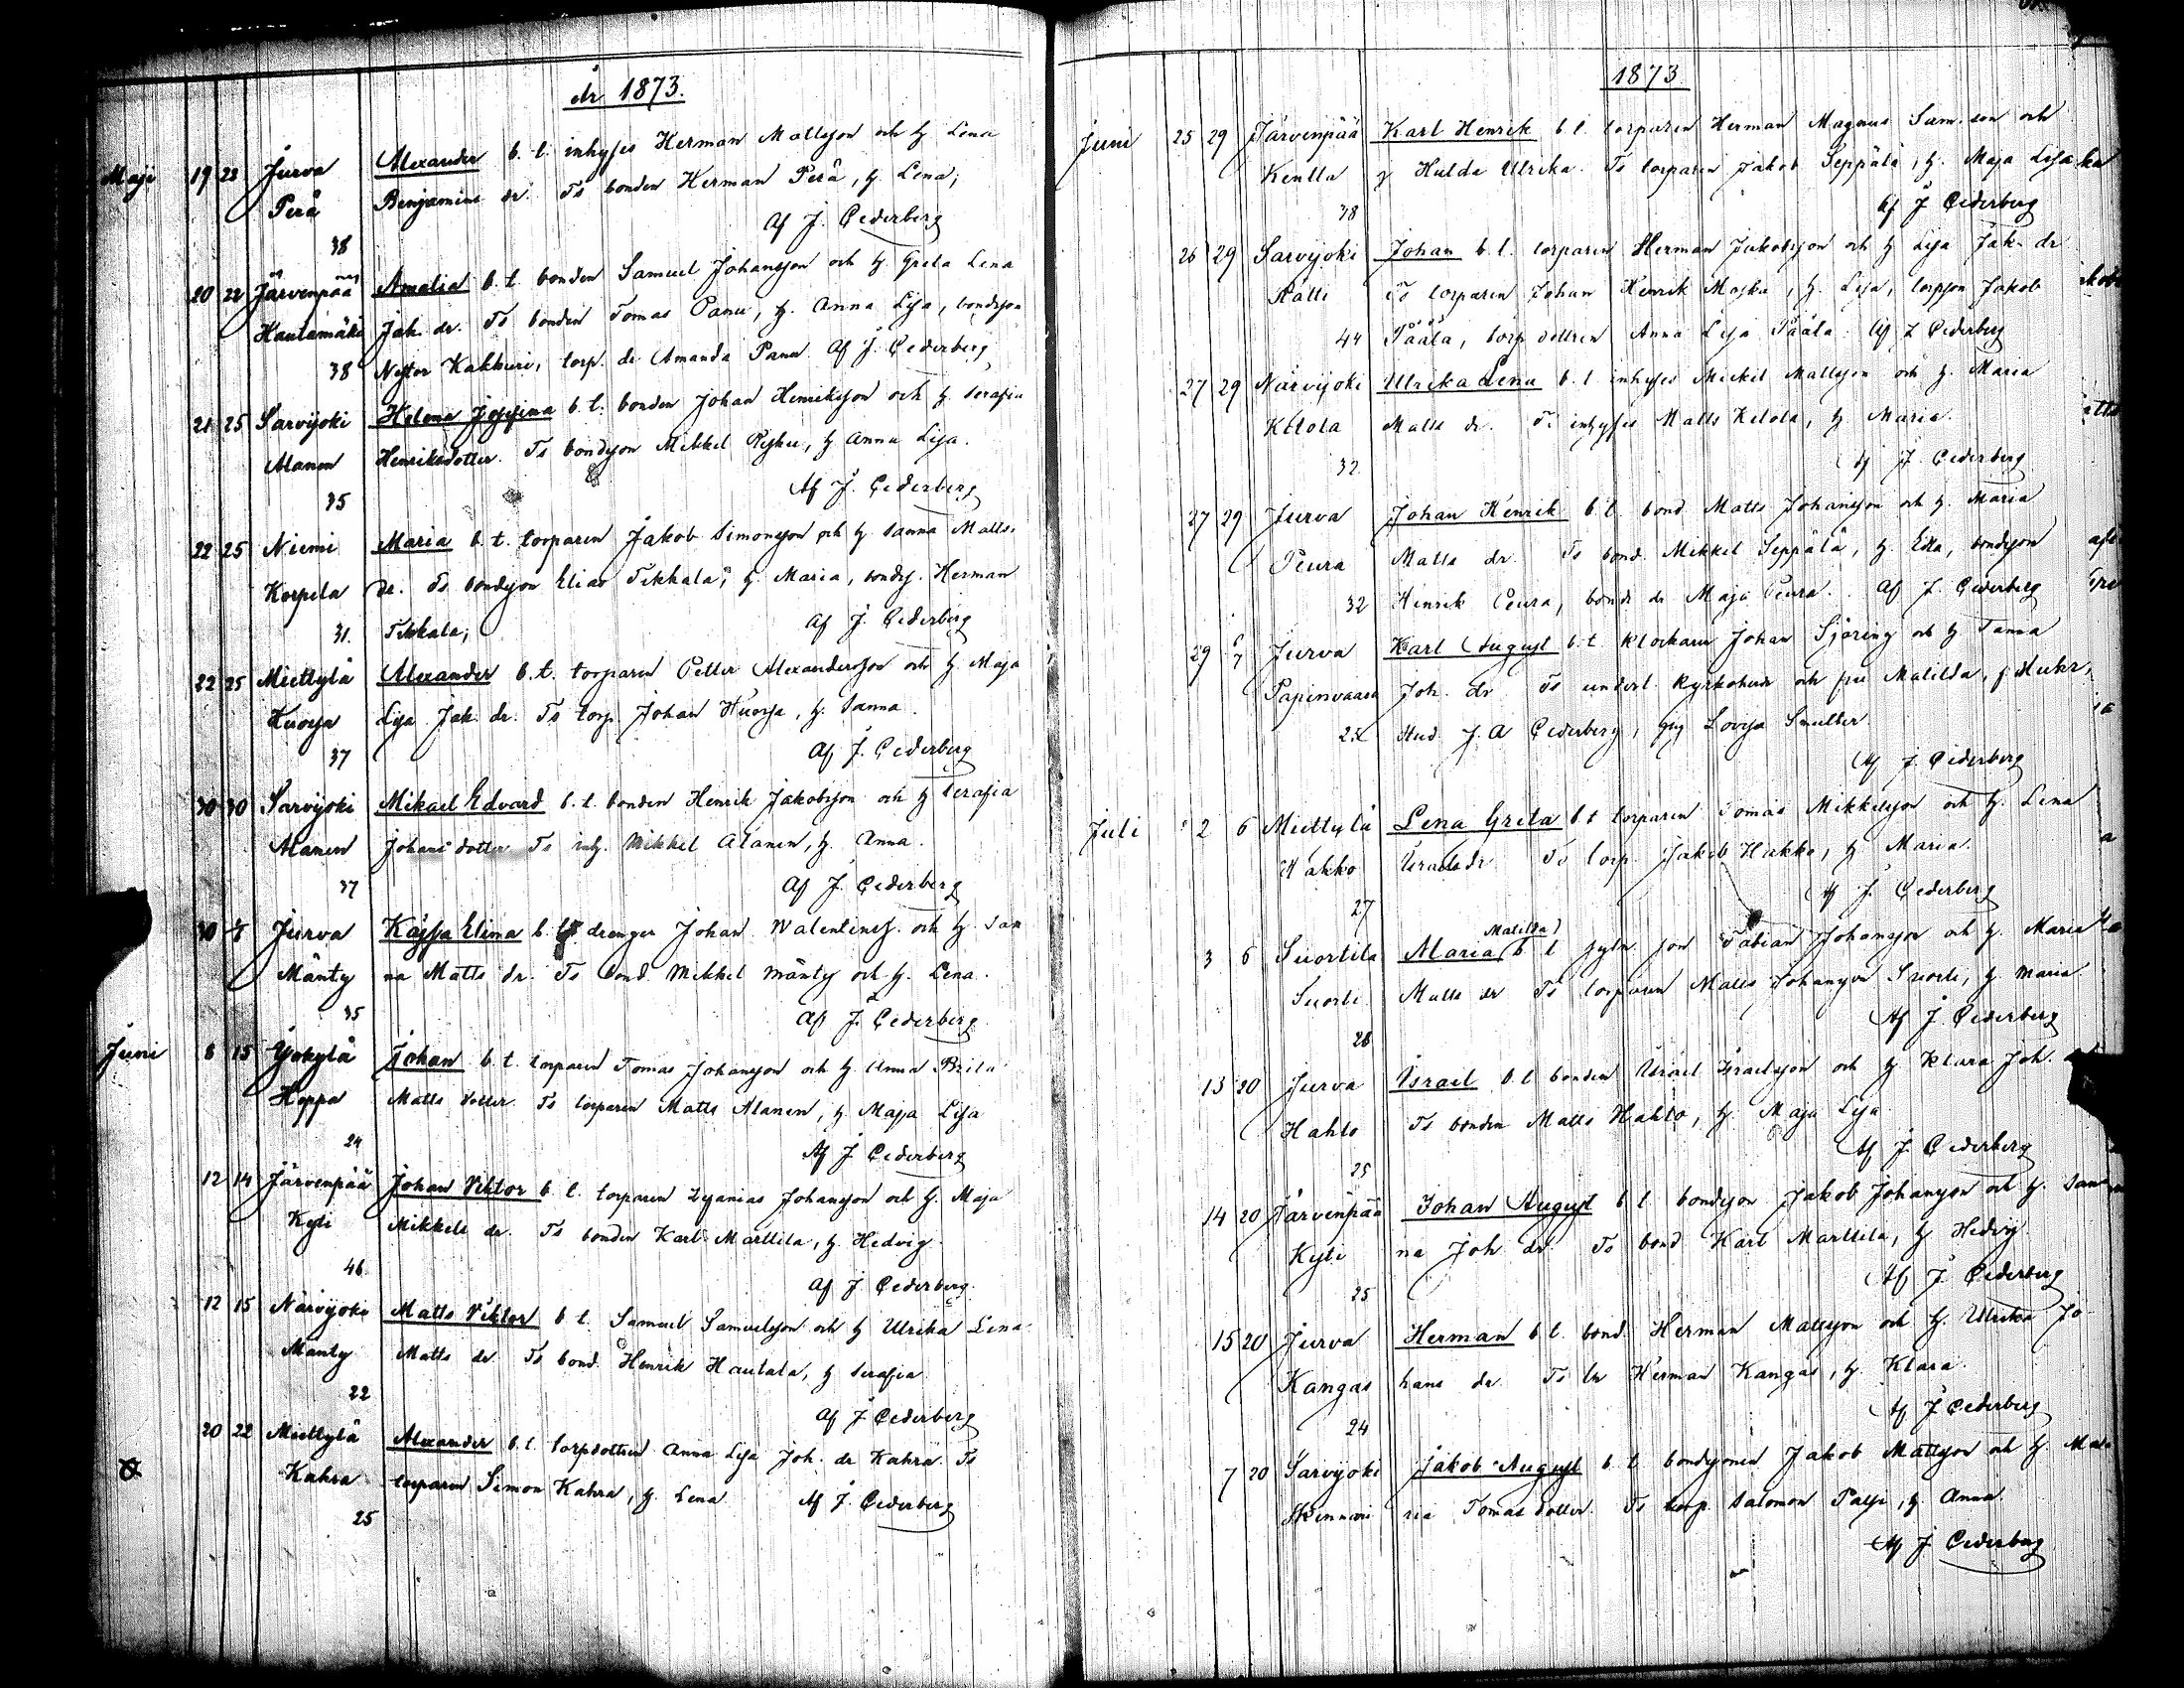 år 1873.
Maji 19 23 Jurva Alexander b. t. inhyses Herman Mattsson och h. Lena
Perä Benjamins dr. Ts bonden Herman Perä, h. Lena,
38 Af J. Cederberg
20 22 Järvenpää Amalia b. t. bonden Samuel Johansson och h. Greta Lena
Hautamäki Jak. dr. Ts bonden Tomas Panu, h. Anna Lisa, bondeson
38 Nestor Kakkuri, torp. dr Amanda Panu. Af J. Cederberg
21 25 Sarvijoki Helena Josefina b. t. bonden Johan Henriksson och h. Serafia
Alanen Henriksdotter. Ts bondson Mikkel, h Anna Lisa.
35 Af J. Cederberg
22 25 Niemi Maria b. t. torparen Jakob Simonsson och h. Sanna Matts
Korpela dr. Ts bondeson Elias Tikkala, h. Maria, bondes. Herman
31. Tikkala, Af J. Cederberg
22 25 Miettylä Alexander b. t. torparen Petter Alexandersson och h. Maja
Kuorsa Lisa Jak. dr. Ts torp. Johan Kuorsa, h. Sanna.
37 Af J. Cederberg
30 30 Sarvijoki Mikael Edvard b. t. bonden Henrik Jakobsson och h Serafia
Alanen Johans dotter Ts inh. Mikkel Alanen, h. Anna.
37 Af J. Cederberg
30 Jurva Kajsa Elina b. t. drengen Johan Walentinss. och h. San
Mänty na Matts dr. Ts bond. Mikkel Mänty och h. Lena.
35 Af J. Cederberg
Juni 8 15 Yökylä Johan b. t. torparen Tomas Johansson och h. Anna Brita
Hoppa Matts dotter. Ts torparen Matts Alanen, h. Maja Lisa
24 Af J Cederberg
12 14 Järvenpää Johan Viktor b. t. torparen Johansson och h. Maja
Kyti Mikkels dr. Ts bonden Karl Marttila, h. Hedvig.
46 Af J Cederberg.
12 15 Närvijoki Matts Viktor b. t. Samuel Samuelsson och h Ulrika Lena
Mänty Matts dr. Ts bond. Henrik Hautala, h Serafia
22 Af J Cederberg
20 22 Miettylä Alexander b. t. torpdottren Anna Lisa Joh. dr Kahra. Ts
Kahra torparen Simon Kahra, h. Lena Af J. Cederberg
25
1873.
Juni 25 29 Järvenpää Karl Henrik b. t. torparen Herman Magnus Sam. son och
Kentta h Hulda Ulrika. Ts torparen Jakob Seppälä, h. Maja Lisa
38 Af J Cederberg
26 29 Sarvijoki Johan b. t. torparen Herman Jakobsson och h Lisa Jak. dr
Ts torparen Johan Henrik, h. Lisa, torpson Jakob
44 Pååla, torp dottren Anna Lisa Pååla. Af J. Cederberg
27 29 Närvijoki Ulrika Lena b. t. inhyses Mickel Mattsson och h. Maria
Ketola Matts dr. Ts inhyses Matts Ketola, h Maria.
32 Af J. Cederberg
27 29 Jurva Johan Henrik b. t. bond. Matts Johansson och h. Maria
Peura Matts dr. Ts bond. Mikkel Seppälä, h. Edla, bondeson
32 Henrik Peura, bonde dr Maja Peura. Af J. Cederberg
29 Jurva Karl August b. t. klockaren Johan Sjöring och h Sanna
Papinvaara Joh. dr Ts undert. Kyrkoherde och fru Matilda,
Stud. J. A Cederberg, Lovisa Smulter
Af J. Cederberg
Juli 2 6 Miettylä Lena Greta b. t torparen Tomas Mikkelsson och h. Lena
Hakko Israels dr Ts torp. Jakob Hakko, h. Maria.
27 Af J. Cederberg
Matilda
3 6 Suortila Maria b t Fabian Johansson och h. Maria
Suorti Matts dr Ts torparen Matts Johansson Suorti, h. Maria
28 Af J. Cederberg
13 20 Jurva Israel b. t bonden Israel Israelsson och h Klara Joh.
Hahto Ts bonden Matts Hahto, h. Maja Lisa
25 Af J. Cederberg
14 20 Järvenpää Johan August b t. bondeson Jakob Johansson och h. San
Kyti na Joh dr. Ts bond Karl Marttila, h Hedvig.
25 Af J. Cederberg
15 20 Jurva Herman b t. bond. Herman Mattsson och h. Ulrika Jo
Kangas hans dr. Ts Herman Kangas, h. Klara
24 Af J Cederberg
7 20 Sarvijoki Jakob August b. t bondesonen Jakob Mattsson och h. Ma
Skinnari ria Tomas dotter. Ts torp. Salomon, h. Anna
Af J. Cederberg